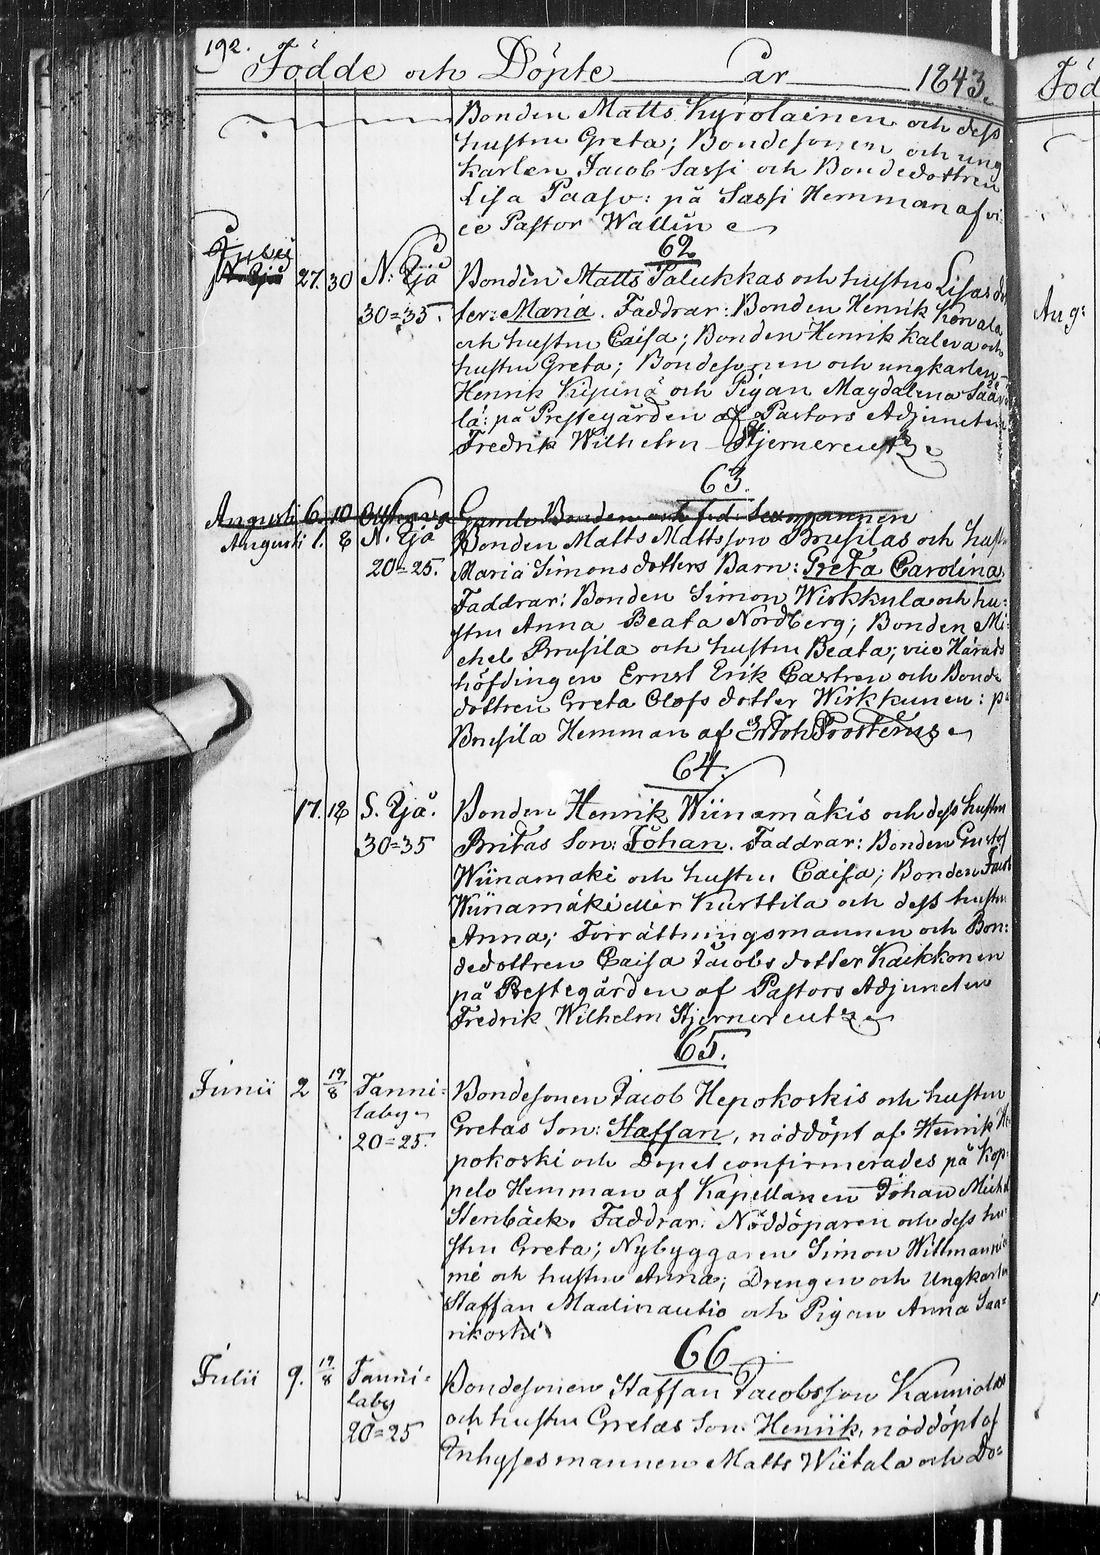 192.
Födde och Döpte år 1843.
Bonden Matts Kyrölainen och dess
hustru Greta; Bondesonen och ung
karlen Jacob Sassi och Bondedottren
Lisa Paaso: på Sassi Hemman af vi
ce Pastor Wallin
62
Julii 27. 30 N. Ijä Bonden Matts Palukkas och hustru Lisas dot
30=35. ter: Maria. Faddrar: Bonden Henrik Korvala
och hustru Caisa; Bonden Henrik Kaleva och
hustru Greta; Bondesonen och ungkarlen
Henrik Kipinä och Pigan Magdalena Saàve
lä: på Prestegården af Pastors Adjuncten
Fredrik Wilhelm Stjerncreutz
63.
Augusti 6. 10 Gamle Bonden och f.d.
Augusti 1. 8 N. Ijä Bonden Matts Mattsson Brusilas och hustru
20=25. Maria Simonsdotters Barn: Greta Carolina
Faddrar: Bonden Simon Wirkkula och hu-
stru Anna Beata Nordberg; Bonden Mi-
chel Brusila och hustru Beata; vice Härads
höfdingen Ernst Erik Castren och Bonde
dottren Greta Olofsdotter Wirkkunen: på
Brusila Hemman af
64.
17. 18 S. Ijä. Bonden Henrik Wiinamäkis och dess hustru
30=35 Britas Son: Johan. Faddrar: Bonden Gustaf
Wiinamäki och hustru Caisa; Bonden Jacob
Wiinamäki eller Kurttila och dess hustru
Anna; Förrättningsmannen och Bon:
dedottren Caisa Jacobsdotter Kaikkonen
på Prestegården af Pastors Adjuncten
Fredrik Wilhelm Stjerncreutz
65.
Junii 2 19/8 Tanni: Bondesonen Jacob Hepokoskis och hustru
laby Gretas Son: Staffan, nöddöpt af Henrik He
20=25. pokoski och Dopet confirmerades på Kop-
pelo Hemman af Kapellanen Johan Michel
Stenbäck. Faddrar: Nöddöparen och dess hu-
stru Greta; Nybyggaren Simon Willmanni
mé och hustru Anna; Drengen och Ungkarlen
Staffan Maalinautio och Pigan Anna Saa-
rikoski
66
Julii 9. 19/8 Tanni: Bondesonen Staffan Jacobsson Kanniolas
laby och hustru Gretas Son: Henrik, nöddöpt af
20=25 Inhysesmannen Matts Wiitala och Do=
Föd
Aug: